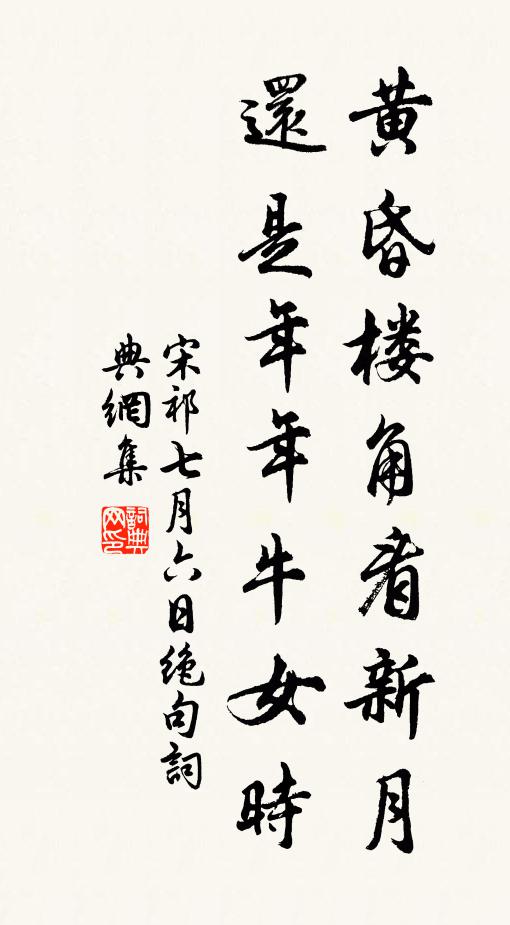 黄昏楼角看新月
還是年年牛女時
宋祁七月六日绝句詞
典網集
詞典网印